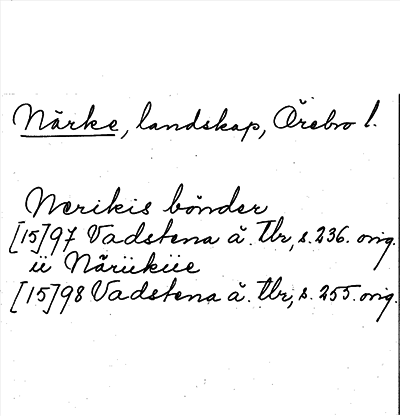 Närke, landskap, Örebro l.
Nerikis bönder
[15]97 Vadstena å. Tbr, s. 236. orig.
ij Närikiie
[15]98 Vadstena å. Tbr, s. 255. orig.